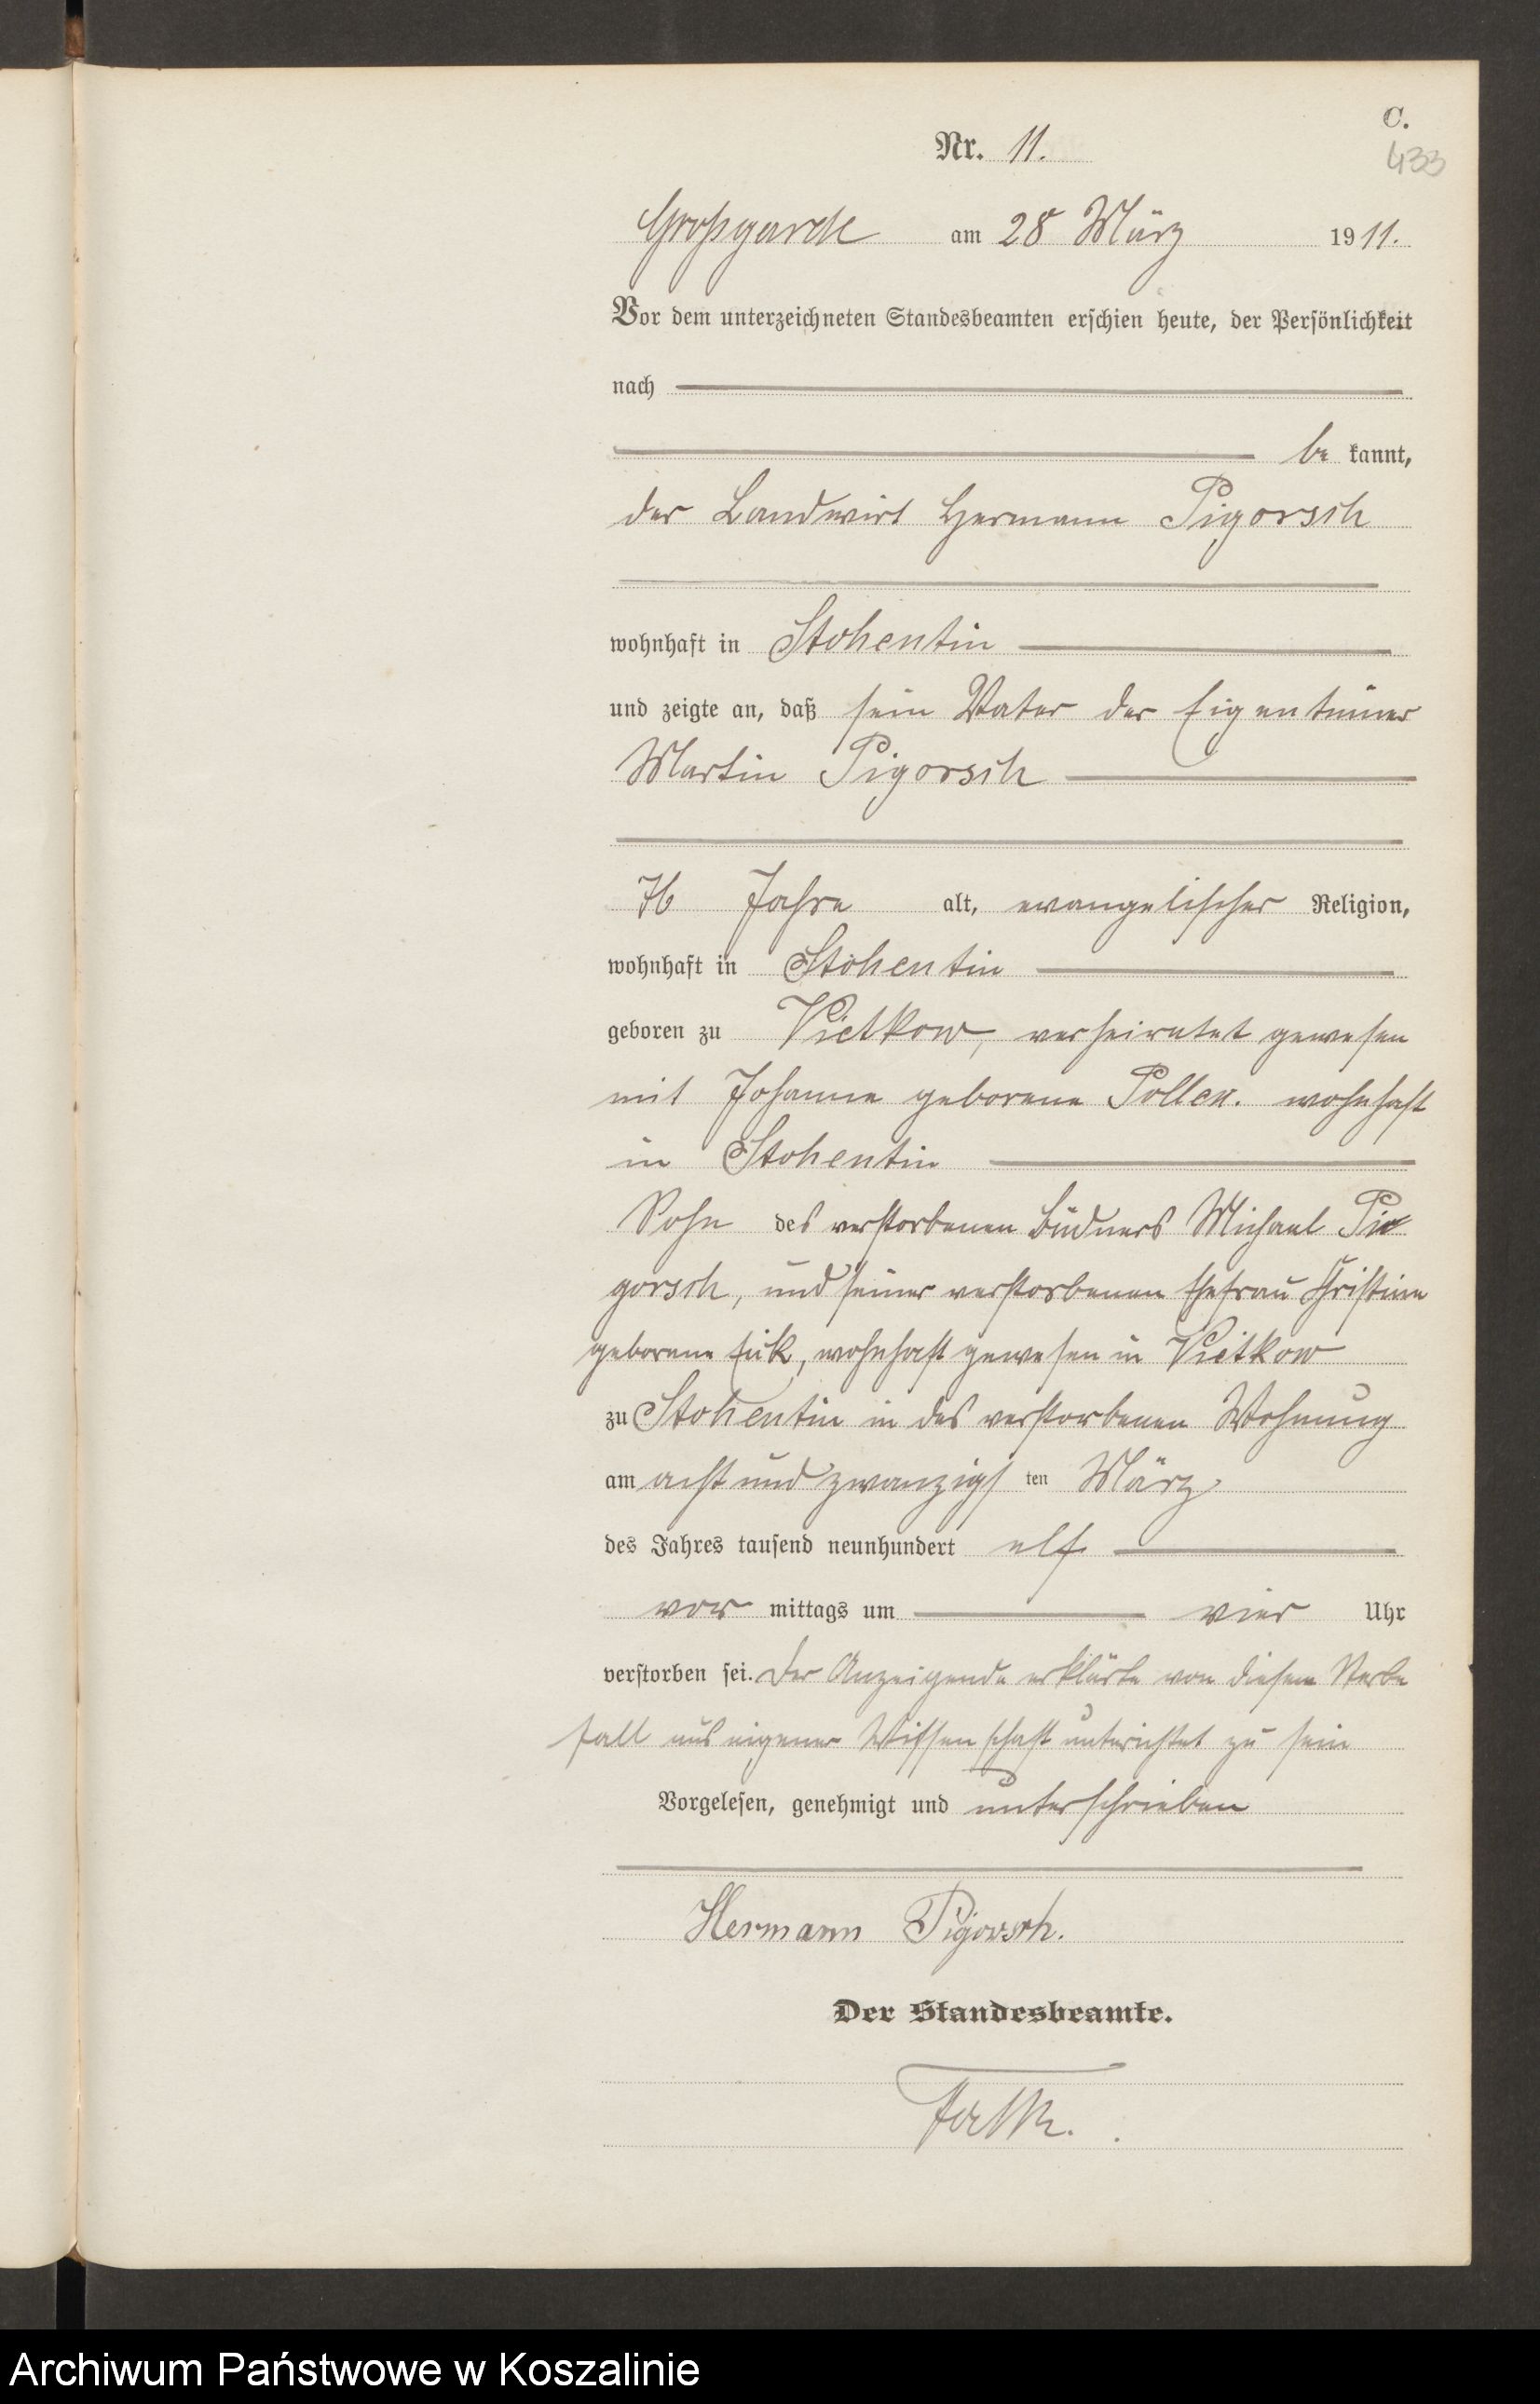 C.
Nr. 11.
433
Großgarde am 28 März 1911.
Vor dem unterzeichneten Standesbeamten erschien heute, der Persönlichkeit
nach
be kannt,
der Landwirt Hermann Pigorsch
wohnhaft in Stohentin
und zeigte an, daß sein Vater der Eigentümer
Martin Pigorsch
76 Jahre alt, evangelischer Religion,
wohnhaft in Stohentin
geboren zu Vietkow, verheiratet gewesen
mit Johanne geborene Pollex. wohnhaft
in Stohentin
Sohn des verstorbenen Büdners Michael Pi
gorsch, und seiner verstorbenen Ehefrau Christine
geborene wohnhaft gewesen in Vietkow
zu Stohentin in des verstorbenen Wohnung
am acht und zwanzigs ten März
des Jahres tausend neunhundert elf
vor mittags um vier Uhr
verstorben sei. Der Anzeigende erklärte von diesem Sterbe
fall aus eigener Wissenschaft unterichtet zu sein
Vorgelesen, genehmigt und unterschrieben
Hermann Pigorsch.
Der Standesbeamte.
Archiwum Państwowe w Koszalinie